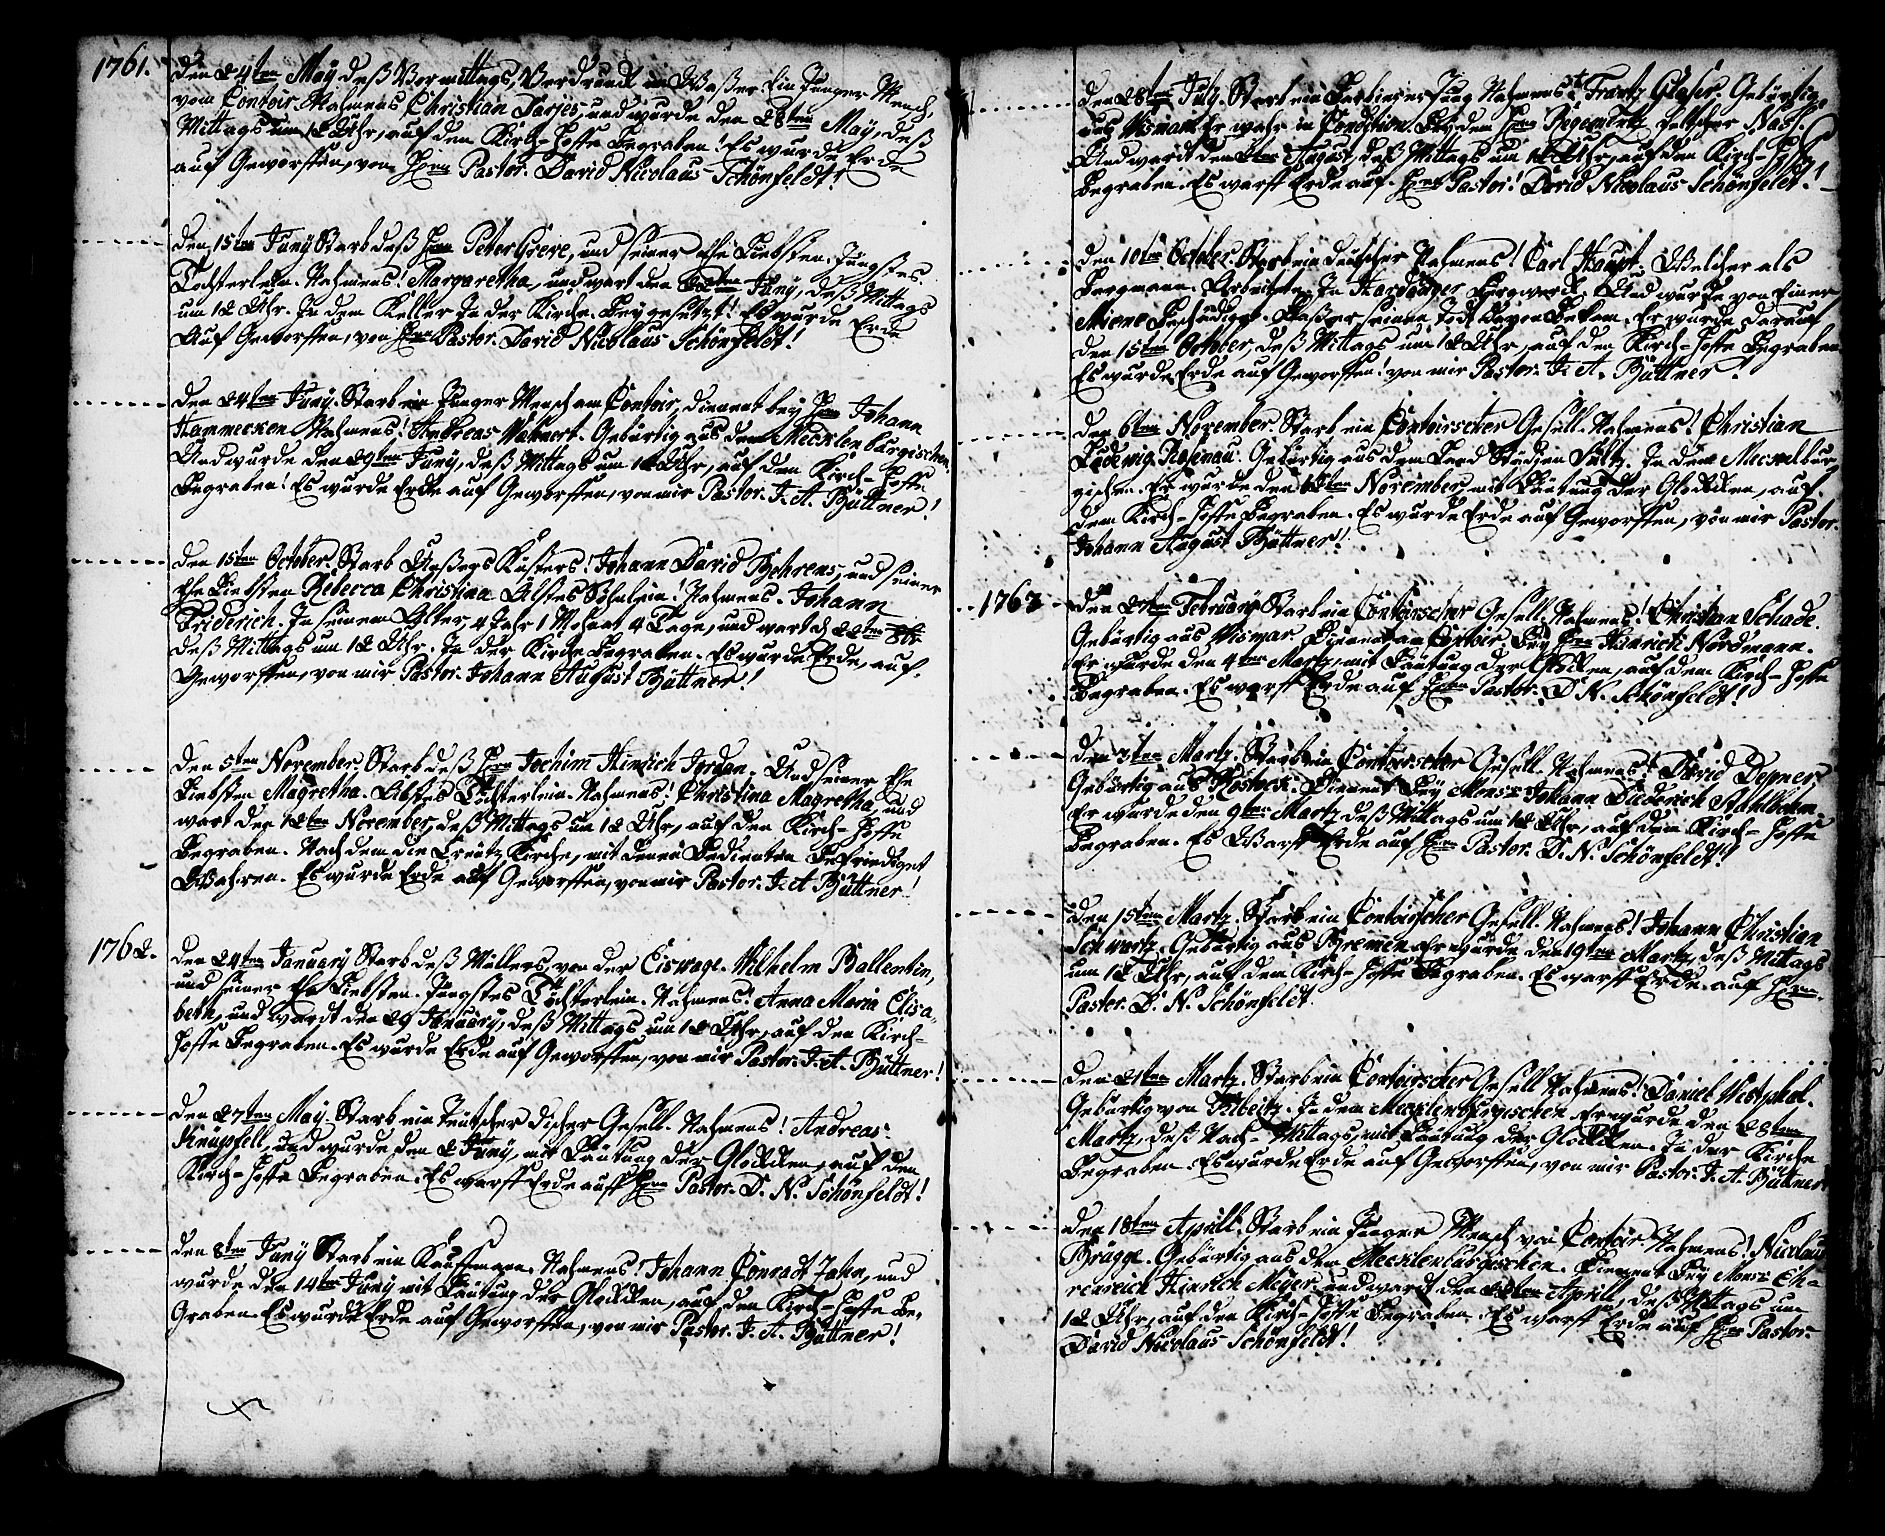 1761. Den 24ten Maÿ deß Vormittags, Verdrunck im Waßer Ein Junger Mensch,
vom Contoir. Nahmens Christian Tarjes, und wurde den 28ten Maÿ, deß
Mittags um 12 Uhr, auf den Kirch-Hoffe Begraben! Es wurde Erde
auf Geworffen, von Herrn Pastor. David Nicolaus Schönfeldt!
Den 15ten Junÿ Starb deß Herrn Peter Greve, und seiner Ehe Liebsten, Jüngstes
Töchterlein. Nahmens! Margaretha, und wart den Junÿ, deß Mittags
um 12 Uhr. In dem Keller In der Kirche Beygesetzt! Es wurde Erde
Auf Geworffen, von Herrn Pastor. David Nicolaus Schönfeldt!
Den 24ten Junÿ. Starb ein Junger Mensch am Contoir, Dienent beÿ Herrn Johann
Hammecken Nahmens! Andreas Wahnert. Gebürtig aus dem Mecklenburgischen.
Und wurde den 29ten Junÿ, deß Mittags um 12 Uhr, auf den Kirch-Hoffe
Begraben! Es wurde Erde auf Geworffen, von mir Pastor. J. A. Büttner!
Den 15ten October. Starb Unsers Küsters! Johann David Behrens, und seiner
Ehe Liebsten Rebecca Christina Elstes Söhnlein! Nahmens. Johann
Friderich. In seinem Alter 4 Jahr 1 Mohnat 4 Tage, und wart d 22ten
deß Mittags um 12 Uhr. In der Kirche Begraben. Es wurde Erde, auf
Geworffen, von mir Pastor. Johann August Büttner!
Den 5ten November, Starb deß Herrn Jochim Hinrich Jordan. Und seiner Ehe
Liebsten Magretha. Elstes Töchterlein. Nahmens! Christina Magretha, und
wart den 12ten November, deß Mittags um 12 Uhr, auf den Kirch-Hoffe
Begraben. Nach dem die Creütz Kirche, mit denen Bedienten Befriediget
Wahren. Es wurde Erde auf Geworffen, von mir Pastor. J. A Büttner!
1762. Den 24ten January Starb deß Müllers, von der Eiswage. Wilhelm Ballentin,
und seiner Ehe Liebsten. Jüngstes Töchterlein. Nahmens! Anna Maria Elisa-
beth, und wardt den 29 January, deß Mittags um 12 Uhr, auf den Kirch-
Hoffe Begraben. Es wurde Erde auf Geworffen, von mir Pastor. J. A. Büttner!
Den 27ten Maÿ. Starb ein Teutscher Discher Gesell. Nahmens! Andreas
Knüpfell, und wurde den 2 Junÿ, mit Läutung der Glocken, auf den
Kirch-Hoffe Begraben. Es warff Erde auff Herrn Pastor. D. N. Schönfeldt!
Den 8ten Junÿ Starb ein Kauffmann. Nahmens! Johann Conradt Jahn, und
wurde den 14ten Junÿ mit Läutung der Glocken, auf den Kirch-Hoffe Be-
Graben. Es wurde Erde auf Geworffen, von mir Pastor. J. A. Büttner!
Den 28ten July. Starb ein Barbierer Jung Nahmens Frantz Glaser. Gebürtig
aus Wismar. Er wahr in Condition Beÿ dem Herrn Regements
Und wardt den August, deß Mittags um 12 Uhr, auf den Kirch-Hoffe
Begraben. Es warff Erde auf. Herrn Pastor! David Nicolaus Schönfeldt!
Den 10ten October. Starb ein deütscher Nahmens! Carl Haupt. Welcher als
Bergmann. Arbeitete. In Hardanger Bergwerck. Und wurde von Einer
Miene Beschädiget. Daßer seinen Todt davon Bekam. Er wurde Darauf
den 15ten October, deß Mittags um 12 Uhr, auf den Kirch-Hoffe Begraben.
Es wurde Erde auf Geworffen! von mir Pastor. J. A. Büttner!
Den 6ten November. Starb ein Contoirscher Gesell. Nahmens! Christian
Ludewig Rosenau. Gebürtig aus dem Land Städjen Sültz. In den Meckelbur-
gischen. Er wurde den 12ten November, mit Läutung der Glocken, auf
dem Kirch-Hoffe Begraben. Es wurde Erde auf Geworffen, von mir Pastor.
Johann August Büttner!
1763 Den 27ten February Starb ein Contoirscher Gesell. Nahmens! Christian Schade.
Gebürtig aus Wismar. Dienent am Contoir. Beÿ Herrn Hinrich Nordmann.
Er wurde den 4ten Martz, mit Läutung der Glocken, auf dem Kirch-Hoffe
Begraben. Es warff Erde auf Herrn Pastor. D. N. Schönfeldt!
Den 3ten Martz. Starb ein Contoirscher Gesell. Nahmens! David Depner
Gebürtig aus Rostock. Dienent Beÿ Monsr: Johann Diederich Stahlbohm.
Er wurde den 9ten Martz, deß Mittags um 12 Uhr, auf dem Kirch-Hoffe
Begraben. Es Warff Erde auf Herrn Pastor. D. N. Schönfeldt!
Den 15ten Martz. Starb ein Contoirscher Gesell. Nahmens! Johann Christian
Schwartz. Gebürtig aus Bremen. Er wurde den 19ten Martz, deß Mittags
um 12 Uhr, auf dem Kirch-Hoffe Begraben. Es warff Erde auf Herrn
Pastor. D. N. Schönfeldt.
Den 21ten Martz. Starb ein Contoirscher Gesell Nahmens! Daniel Westphal.
Gebürtig von Ribnitz. In den Mecklenburgischen. Er wurde den 28ten
Martz, deß Nach-Mittags, mit Läutung der Glocken. In der Kirche
Begraben. Es wurde Erde auf Geworffen, von mir Pastor. J. A. Büttner
Den 18ten Aprill. Starb ein Junger Mensch von Contoir. Nahmens! Nicolaus
Brügge. Gebürtig aus den Mecklenburgischen. Dienent Beÿ Monsr: Eh-
renreich Hinrich Meyer, und wardt den Aprill, deß Mittags um
12 Uhr, auf den Kirch-Hoffe Begraben. Es warff Erde auf Herrn Pastor.
David Nicolaus Schönfeldt!